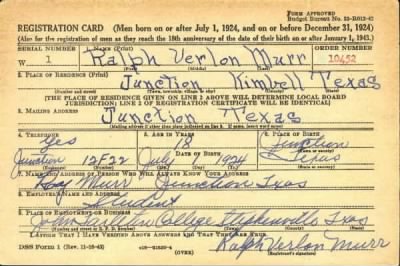 FORM APPROVED
Budget Bureau No. 33-R012-42
REGISTRATION CARD (Men born on or after July 1, 1924, and on or before December 31, 1924)
(Also for the registration of men as they reach the 18th anniversary of the date of their birth on or after January 1, 1943.)
SERIAL NUMBER
1. NAME (Print)
ORDER NUMBER
W 1
Ralph Verlon Murr
10452
(First) (Middle) (Last)
2. PLACE OF RESIDENCE (Print)
Junction Kimbell Texas
(Number and street) (Town, township, village or city) (County) (State)
(THE PLACE OF RESIDENCE GIVEN ON LINE 2 ABOVE WILL DETERMINE LOCAL BOARD
JURISDICTION; LINE 2 OF REGISTRATION CERTIFICATE WILL BE IDENTICAL)
3. MAILING ADDRESS
Junction Texas
(Mailing address if other than place indicated on line 2. If same, insert word same)
4. TELEPHONE
5. AGE IN YEARS
6. PLACE OF BIRTH
Yes
18
Junction
DATE OF BIRTH
(Town or county)
Junction 12F22 July 1924 Texas
(Exchange) (Number) (Mo.) (Day) (Yr.) (State or country)
7. NAME AND ADDRESS OF PERSON WHO WILL ALWAYS KNOW YOUR ADDRESS
Murr, Junction Texas
8. EMPLOYER'S NAME AND ADDRESS
Student
9. PLACE OF EMPLOYMENT OR BUSINESS
John Tarleton College Stephenville, Texas
(Number and street or R. F. D. number) (Town) (County) (State)
I AFFIRM THAT I HAVE VERIFIED ABOVE ANSWERS AND THAT THEY ARE TRUE.
DSS Form 1 (Rev. 11-16-42)
(OVER)
Ralph Verlon Murr
(Registrant's signature)